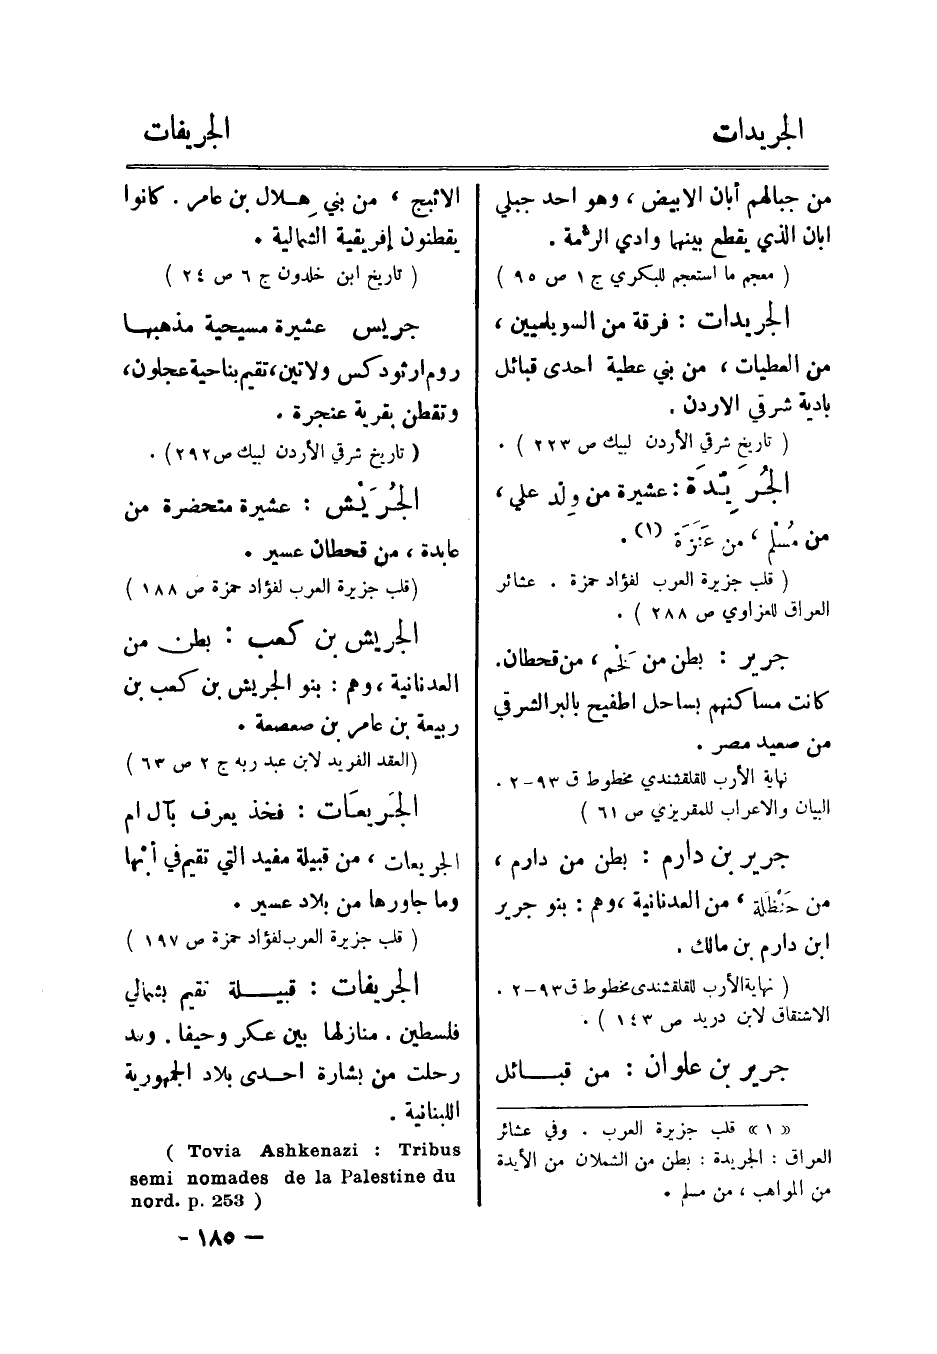 الجريدات
الجريفات
من جبالهم أبان الابيض ، وهو احد جبلي
ابان الذي يقطع بينها وادي الرمة .
( معجم ما استعجم للبكري ج ١ ص ٩٥ )
الجريدات : فرقة من السويلميين ،
من العطيات ، من بني عطية احدى قبائل
بادية شرقي الاردن .
( تاريخ شرقي الأردن لبيك ص ٢٢٣ ) .
الجُرَيِّدَة : عشيرة من وِلْد علي ،
من مُسْلِم ، من عَنَزَة (١) .
( قلب جزيرة العرب لفؤاد حمزة . عشائر
العراق للعزاوي ص ٢٨٨ ) .
جرير : بطن من لَخْم ، من قحطان .
كانت مساكنهم بساحل اطفيح بالبر الشرقي
من صعيد مصر .
نهاية الأرب للقلقشندي مخطوط ق ٩٣-٢ .
البيان والاعراب للمقريزي ص ٦١ )
جرير بن دارم : بطن من دارم ،
من حَنْظَلة ، من العدنانية ،وهم : بنو جرير
ابن دارم بن مالك .
( نهاية الأرب للقلقشندى مخطوط ق ٩٣-٢ .
الاشتقاق لابن دريد ص ١٤٣ ) .
جرير بن علوان : من قبائل
« ١ » قلب جزيرة العرب . وفي عشائر
العراق : الجريدة : بطن من الشملان من الأيدة
من المواهب ، من مسلم .
الاثبج ، من بني هلال بن عامر . كانوا
يقطنون إفريقية الشمالية .
( تاريخ ابن خلدون ج ٦ ص ٢٤ )
جريس عشيرة مسيحية مذهبها
روم ارثودكس ولاتين ، تقيم بناحية عجلون ،
وتقطن بقرية عنجرة .
( تاريخ شرقي الأردن لبيك ص ٢٩٢ ) .
الجُرَيْش : عشيرة متحضرة من
عابدة ، من قحطان عسير .
(قلب جزيرة العرب لفؤاد حمزة ص ١٨٨ )
الجريش بن كعب : بطن من
العدنانية ، وهم : بنو الجريش بن كعب بن
ربيعة بن عامر بن صعصعة .
(العقد الفريد لابن عبد ربه ج ٢ ص ٦٣ )
الجَريعَات : فخذ يعرف بآل ام
الجريعات ، من قبيلة مفيد التي تقيم في أبها
وما جاورها من بلاد عسير .
( قلب جزيرة العرب لفؤاد حمزة ص ١٩٧ )
الجريفات : قبيلة تقيم بشمالي
فلسطين . منازلها بين عكر وحيفا . وقد
رحلت من بشارة احدى بلاد الجمهورية
اللبنانية .
( Tovia Ashkenazi : Tribus
semi nomades de la Palestine du
nord. p. 253 )
- ١٨٥ —